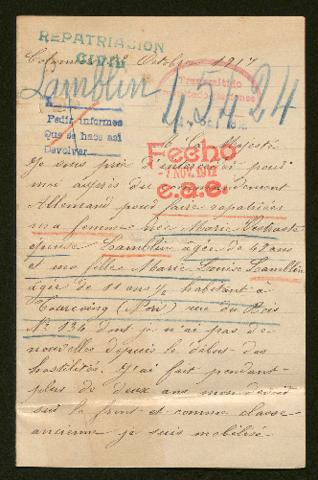 REPATRIACION
CIVIL
Octobre 1917
Lamblin
45424
Transmitido
Pedir informes
Que se hace así
Devolver
Majesté
Fecho
7 NOV. 1917
c.a.e.
Je vous prie d'intercéder pour
moi auprès du commandement
Allemand pour faire rapatrier
ma femme née Marie
épouse Lamblin agée de 42 ans
et ma fille Marie Louise Lamblin
agée de 11 ans ½ habitant à
Tourcoing (Nord) rue du Bois
No 134 dont je n'ai pas de
nouvelles depuis le début des
hostilités. J'ai fait pendant
plus de deux ans mon devoir
sur le front et comme classe
ancienne je suis mobilisé